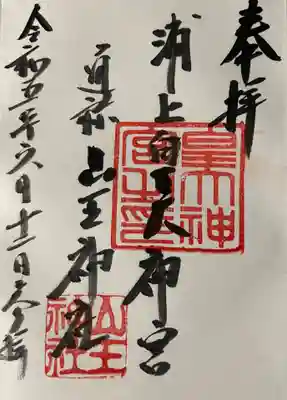 奉拝
浦上皇大神宮
通称山王神社
令和五年六月十二日
皇大神
宮之印
山王
神社